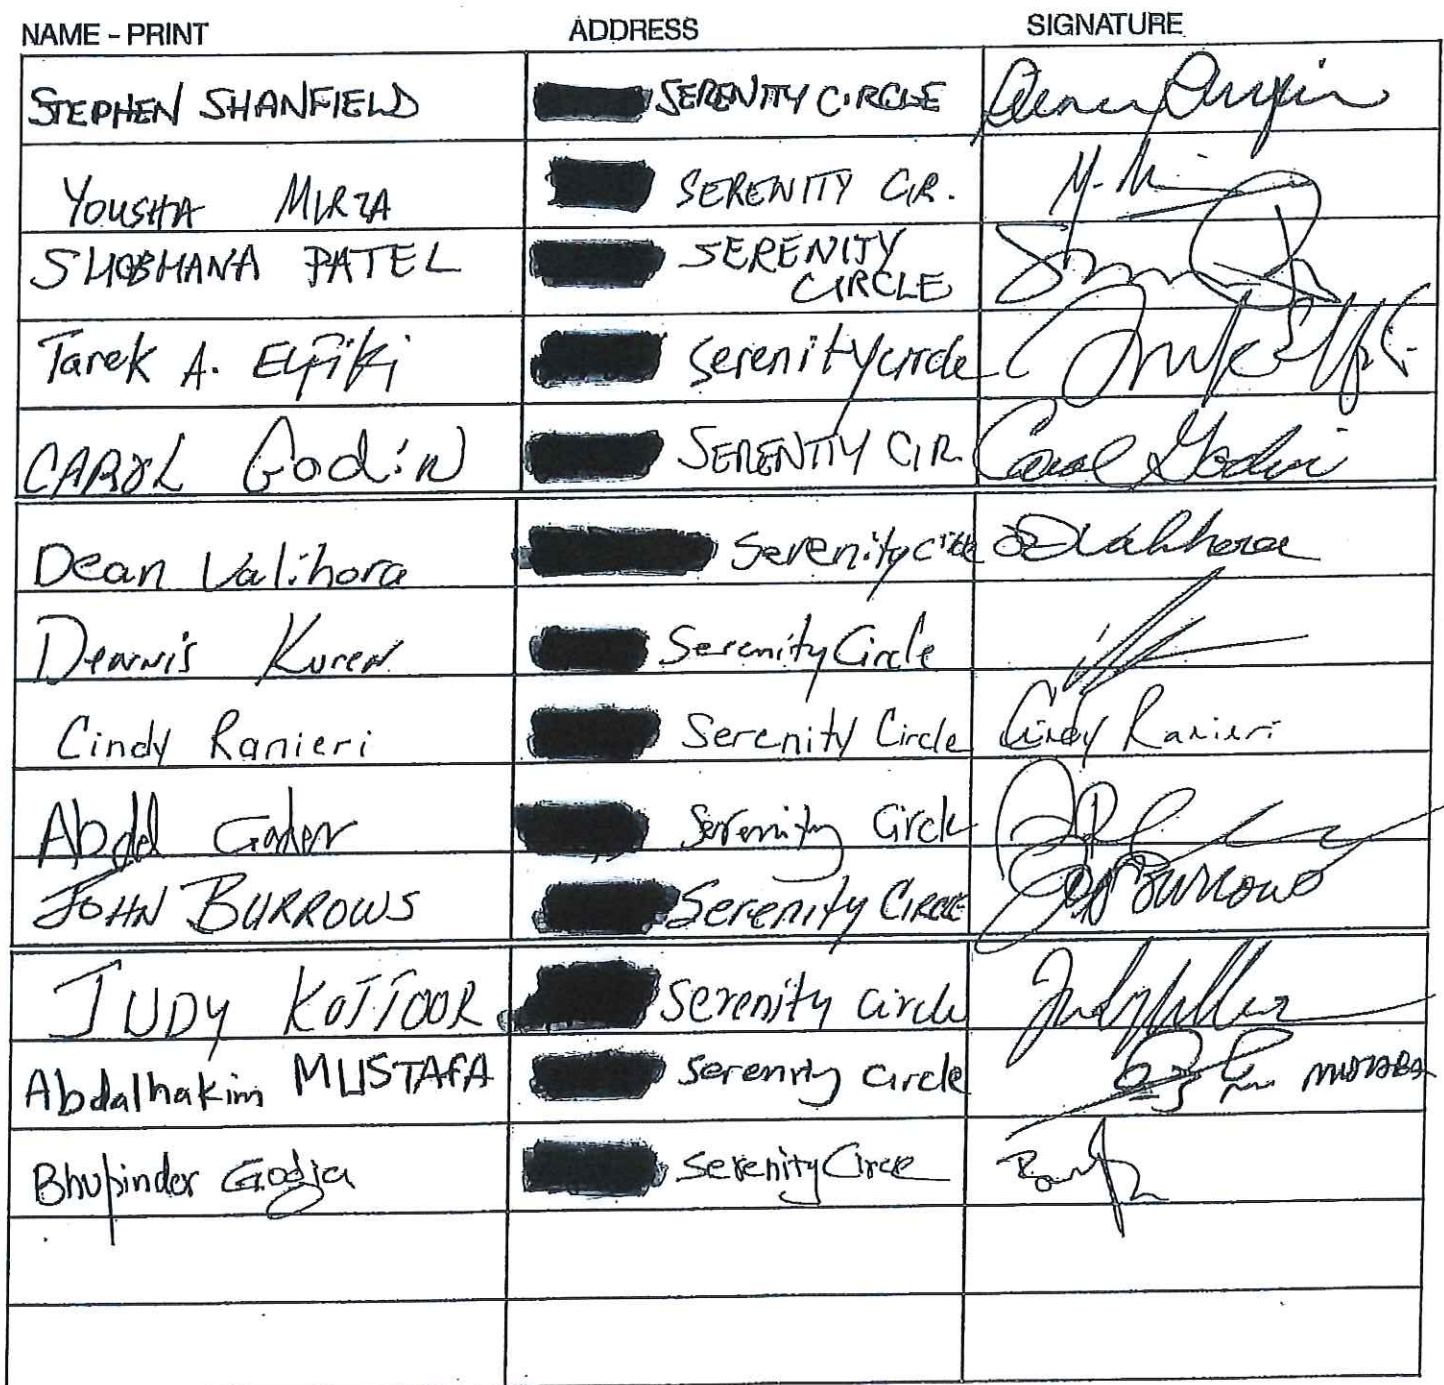 NAME - PRINT ADDRESS SIGNATURE
STEPHEN SHANFIELD SERENITY CIRCLE
YOUSHA MIRZA SERENITY CIR.
SHOBHANA PATEL SERENITY
CIRCLE
Tarek A. Elfiki Serenity circle
CAROL Godin SERENITY CIR. Carol Godin
Dean Valihora Serenity circle D Valihora
Dennis Kuren Serenity Circle
Cindy Ranieri Serenity Circle Cindy Ranieri
Abdel Gaber Serenity Circle
JOHN BURROWS Serenity CIRCLE Burrows
JUDY KOTTOOR Serenity circle
Abdalhakim MUSTAFA Serenity circle
Bhupinder Godja Serenity Circle